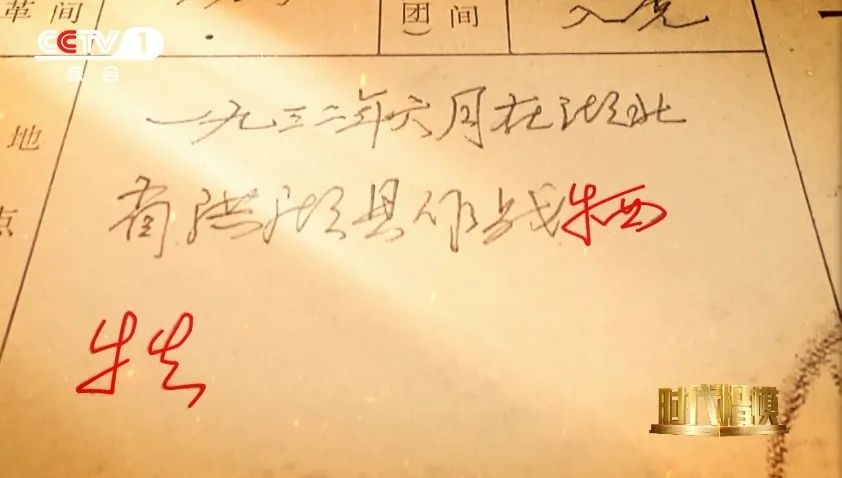 革间
团间
）
入党
CCTV 1
综合
地
点
一九三二年六月在湖北
省洪湖县作战牺
牲
时代楷模